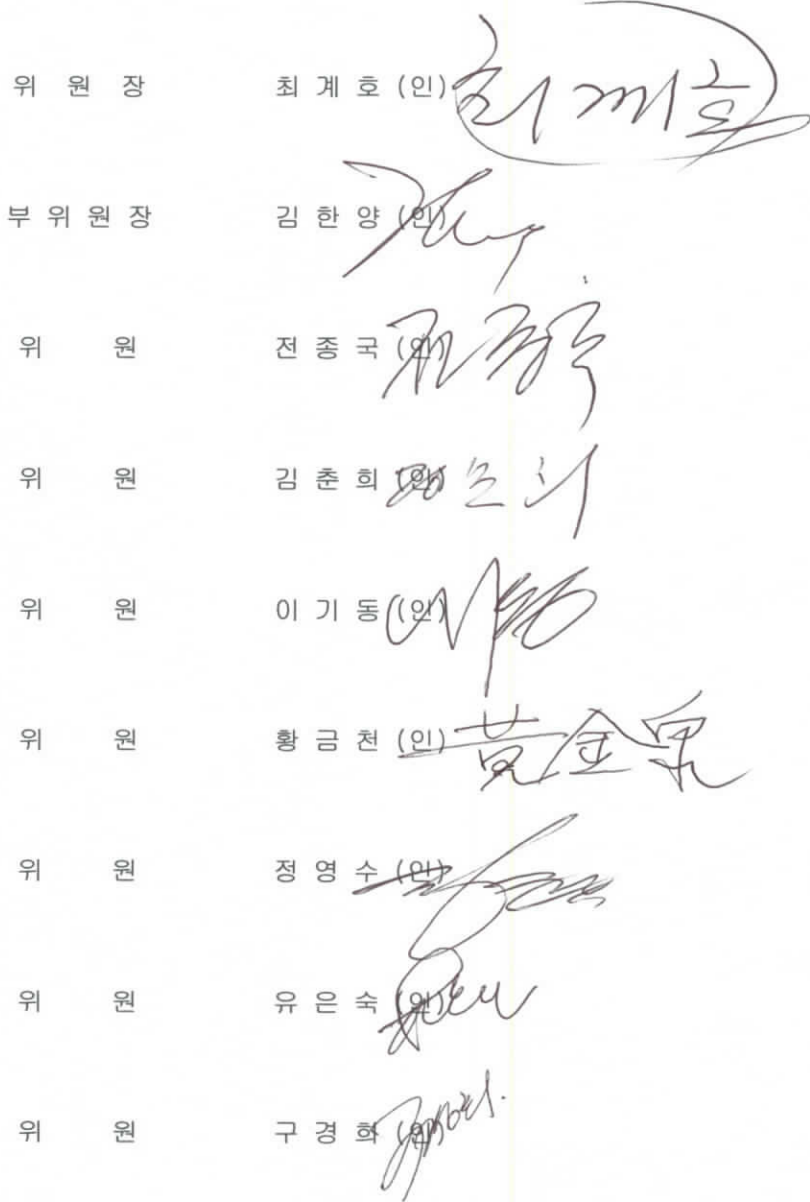 위 원 장 최 계 호 (인) 최계호
부 위 원 장 김 한 양 (인)
위 원 전 종 국 (인) 전종국
위 원 김 춘 희 (인)
위 원 이 기 동 (인)
위 원 황 금 천 (인) 黃金泉
위 원 정 영 수 (인)
위 원 유 은 숙 (인)
위 원 구 경 희 (인)